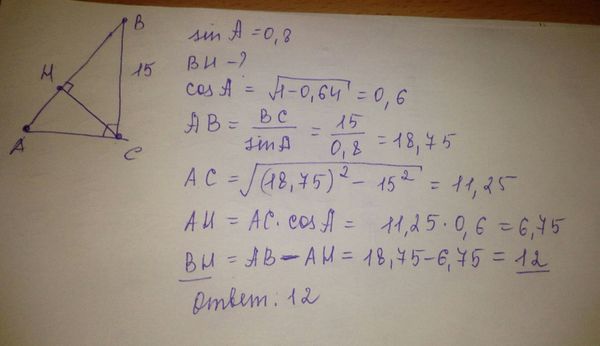 B
H
15
A
C
sin A = 0,8
BH - ?
cos A = √1-0,64 = 0,6
AB = BC/sin A = 15/0,8 = 18,75
AC = √(18,75)² - 15² = 11,25
AH = AC · cos A = 11,25 · 0,6 = 6,75
BH = AB - AH = 18,75 - 6,75 = 12
Ответ: 12